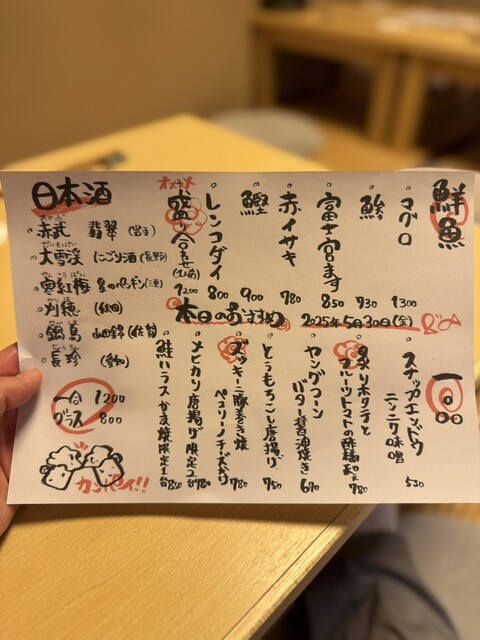 鮮魚
マグロ 1300
鯵 930
富士宮ます 850
赤イサキ 780
鰹 900
レンコダイ 800
オススメ
盛り合わせ(1人前) 1200
本日のおすすめ 2025年5月30日(金)
一品
スナップエンドウ ニンニク味噌 530
炙りホタテと フルーツトマトの酢橘和え 780
ヤングコーン バター醤油焼き 670
とうもろこし唐揚げ 750
ズッキーニ豚巻き焼 ペコリーノチーズかけ 780
メヒカリ唐揚げ 限定2台 780
鮭ハラスかま焼 限定1台 850
日本酒
赤武 翡翠 (岩手)
大雪渓 にごり酒 (長野)
寒紅梅 夏のペンギン (三重)
刈穂 (秋田)
鍋島 山田錦 (佐賀)
長珍 (愛知)
一合 1200
グラス 800
カンパイ!!